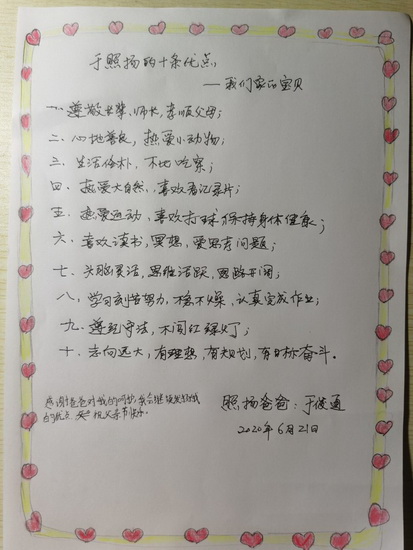 于照扬的十条优点
——我们家的宝贝
一、尊敬长辈、师长,孝顺父母;
二、心地善良,热爱小动物;
三、生活俭朴,不比吃穿;
四、热爱大自然,喜欢看记录片;
五、热爱运动,喜欢打球保持身体健康;
六、喜欢读书,冥想,爱思考问题;
七、头脑灵活,思维活跃,思路开阔;
八、学习刻苦努力,不急不燥,认真完成作业;
九、遵纪守法,不闯红绿灯;
十、志向远大,有理想,有规划,有目标奋斗。
感谢爸爸对我的问候,我会继续发扬我
的优点 祝父亲节快乐
照扬爸爸:于俊通
2020年6月21日